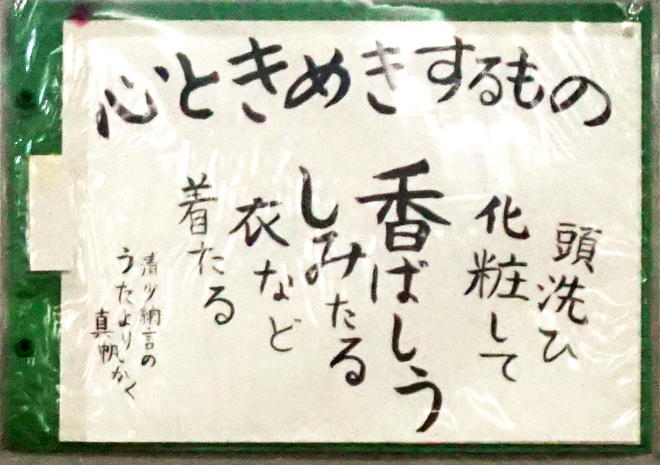 心ときめきするもの
頭洗ひ
化粧して
香ばしう
しみたる
衣など
着たる
清少納言の
うたよりかく
真帆